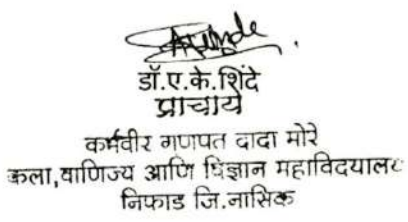 डॉ.ए.के.शिंदे
प्राचार्य
कर्मवीर गणपत दादा मोरे
कला,वाणिज्य आणि विज्ञान महाविदयालय
निफाड जि.नासिक